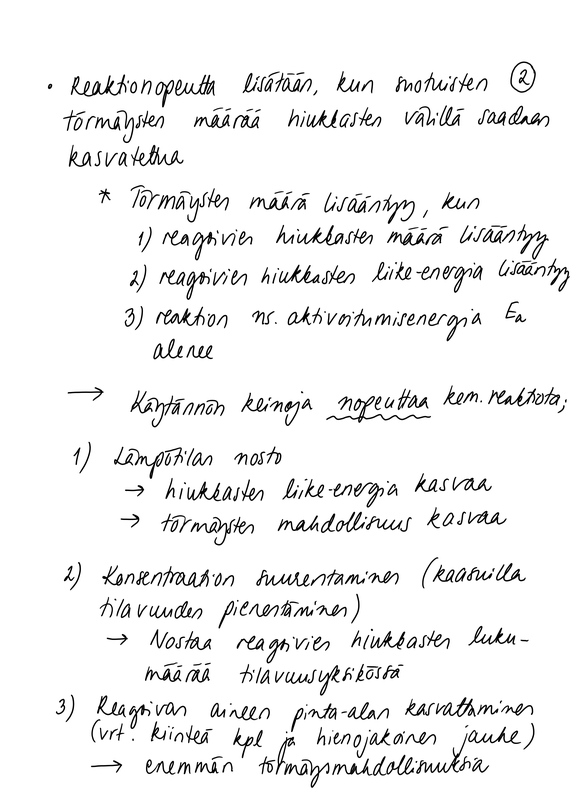 • Reaktionopeutta lisätään, kun suotuisten ②
törmäysten määrää hiukkasten välillä saadaan
kasvatettua
* Törmäysten määrä lisääntyy, kun
1) reagoivien hiukkasten määrä lisääntyy
2) reagoivien hiukkasten liike-energia lisääntyy
3) reaktion ns. aktivoitumisenergia Ea
alenee
→ Käytännön keinoja nopeuttaa kem. reaktiota;
1) Lämpötilan nosto
→ hiukkasten liike-energia kasvaa
→ törmäysten mahdollisuus kasvaa
2) Konsentraation suurentaminen (kaasuilla
tilavuuden pienentäminen)
→ Nostaa reagoivien hiukkasten luku-
määrää tilavuusyksikössä
3) Reagoivan aineen pinta-alan kasvattaminen
(vrt. kiinteä kpl ja hienojakoinen jauhe)
→ enemmän törmäysmahdollisuuksia